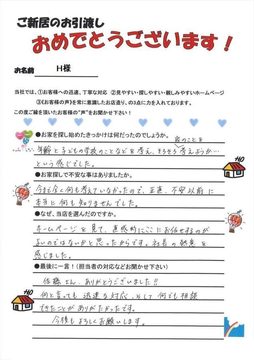 ご新居のお引渡し
おめでとうございます！
お名前 H様
当社では、①お客様への迅速、丁寧な対応 ②見やすい・探しやすい・親しみやすいホームページ
③《お客様の声》を常に意識したお店造り、の3点に力を入れております。
この度ご縁を頂いたお客様の"声"をお聞かせ下さい！
●お家を探し始めたきっかけは何だったのでしょうか。
家のことを
年齢と子どもの学校のことなどを考え、そろそろ考えようか…
という感じでした。
●お家探しで不安な事はありましたか。
今まで全く何も考えていなかったので、正直、不安以前に
本当に何も知りませんでした。
●なぜ、当店を選んだのですか。
ホームページを見て、直感的にここにお任せするのが
よいのではないかと思ったからです。社長の熱意を
感じました。
●最後に一言！（担当者の対応などお聞かせ下さい）
佐藤さん、ありがとうございました!!
何と言っても迅速な対応、そして何でも相談
できたことがありがたかったです。
今後もよろしくお願いします。